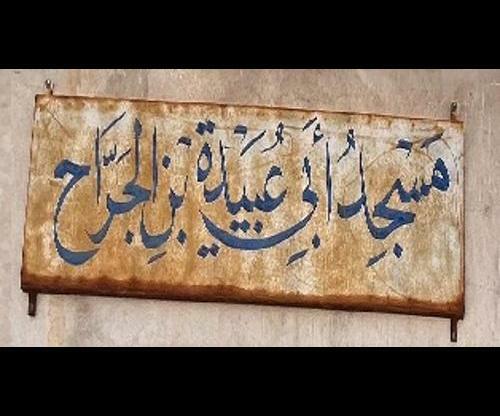 مَسْجِدُ أَبِي عُبَيْدَةَ بْنِ الجَرَّاحِ